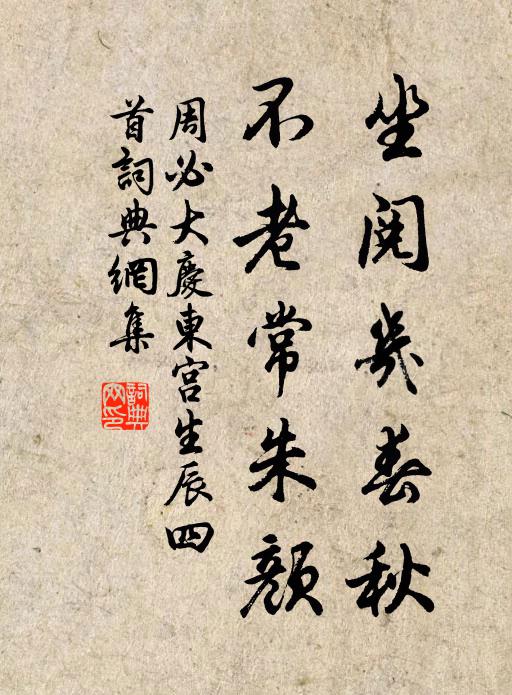 坐閱幾春秋
不老常朱顏
周必大慶東宮生辰四
首詞典網集
詞典
网印